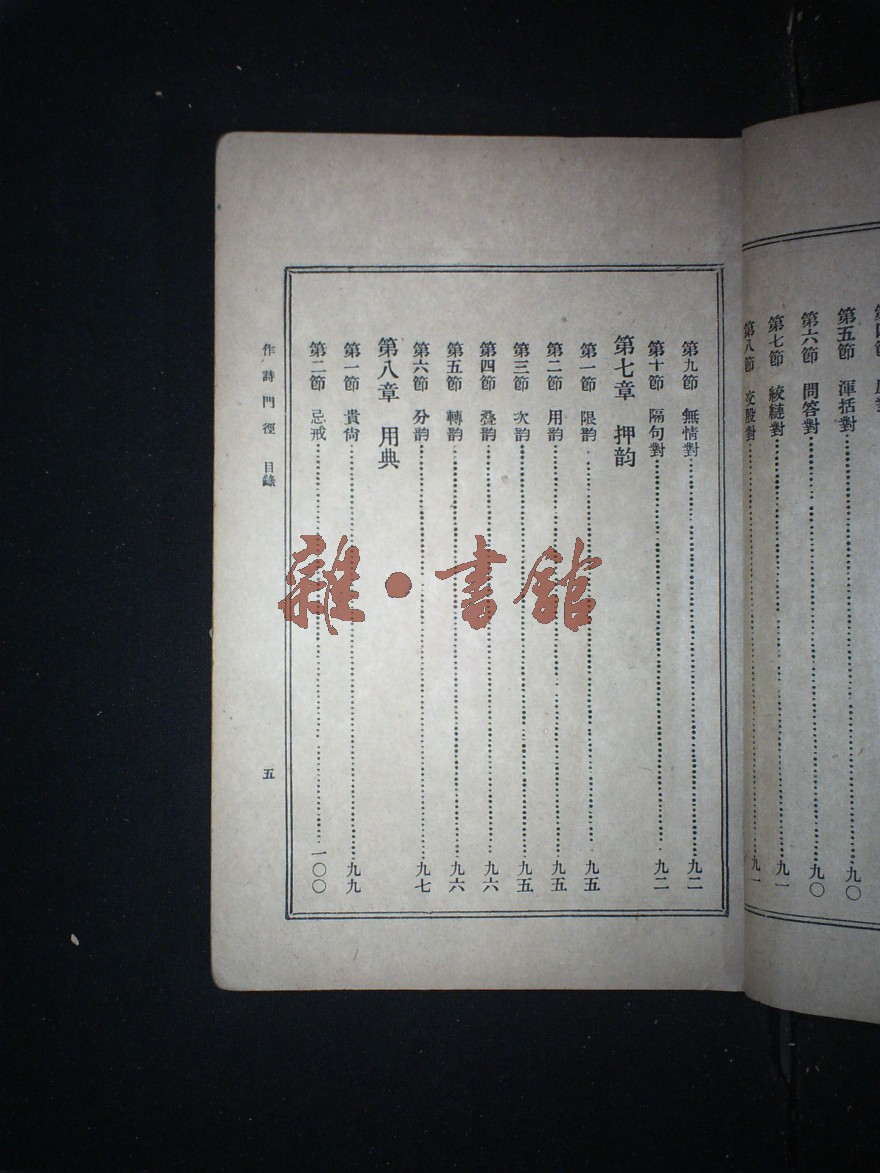 第五節 渾括對……九〇
第六節 問答對……九〇
第七節 絞縺對……九一
第八節 交股對……九一
第九節 無情對……九二
第十節 隔句對……九二
第七章 押韵
第一節 限韵……九五
第二節 用韵……九五
第三節 次韵……九五
第四節 疊韵……九六
第五節 轉韵……九六
第六節 分韵……九七
第八章 用典
第一節 貴尙……九九
第二節 忌戒……一〇〇
作詩門徑 目錄
五
雜·書館